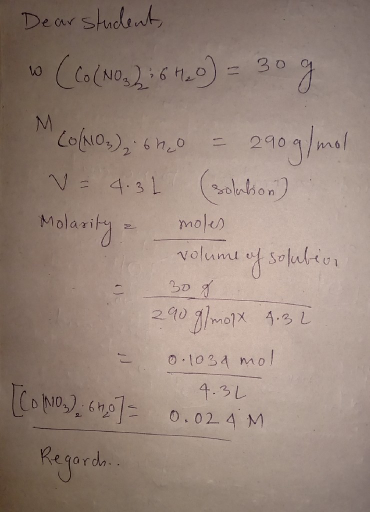 Dear student,
w (Co(NO3)2·6H2O) = 30 g
M Co(NO3)2·6H2O = 290 g/mol
V = 4.3 L (solution)
Molarity = moles
volume of solution
= 30 g
290 g/mol x 4.3 L
= 0.1034 mol
4.3L
[Co(NO3)2·6H2O] = 0.024 M
Regards..